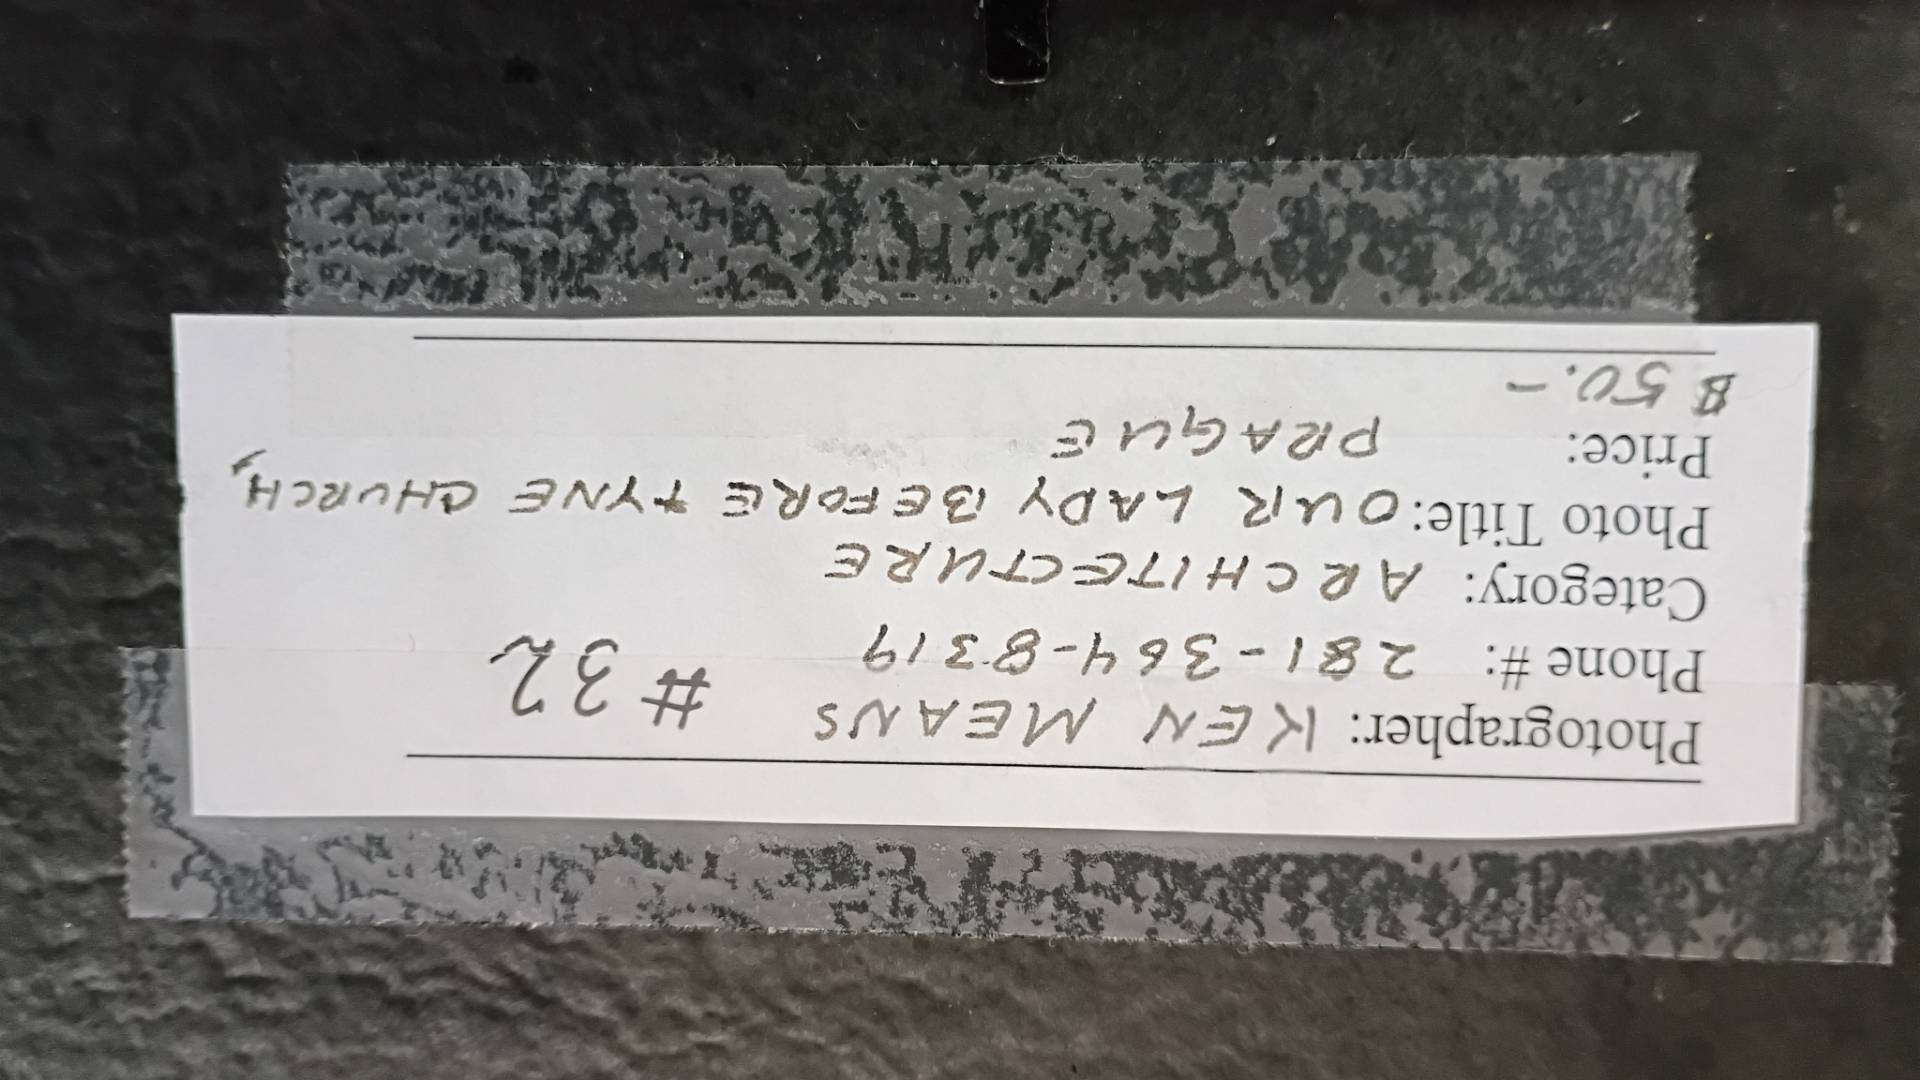 Photographer: KEN MEANS #32
Phone #: 281-364-8319
Category: ARCHITECTURE
Photo Title: OUR LADY BEFORE TYNE CHURCH,
PRAGUE
Price:
$ 50.-